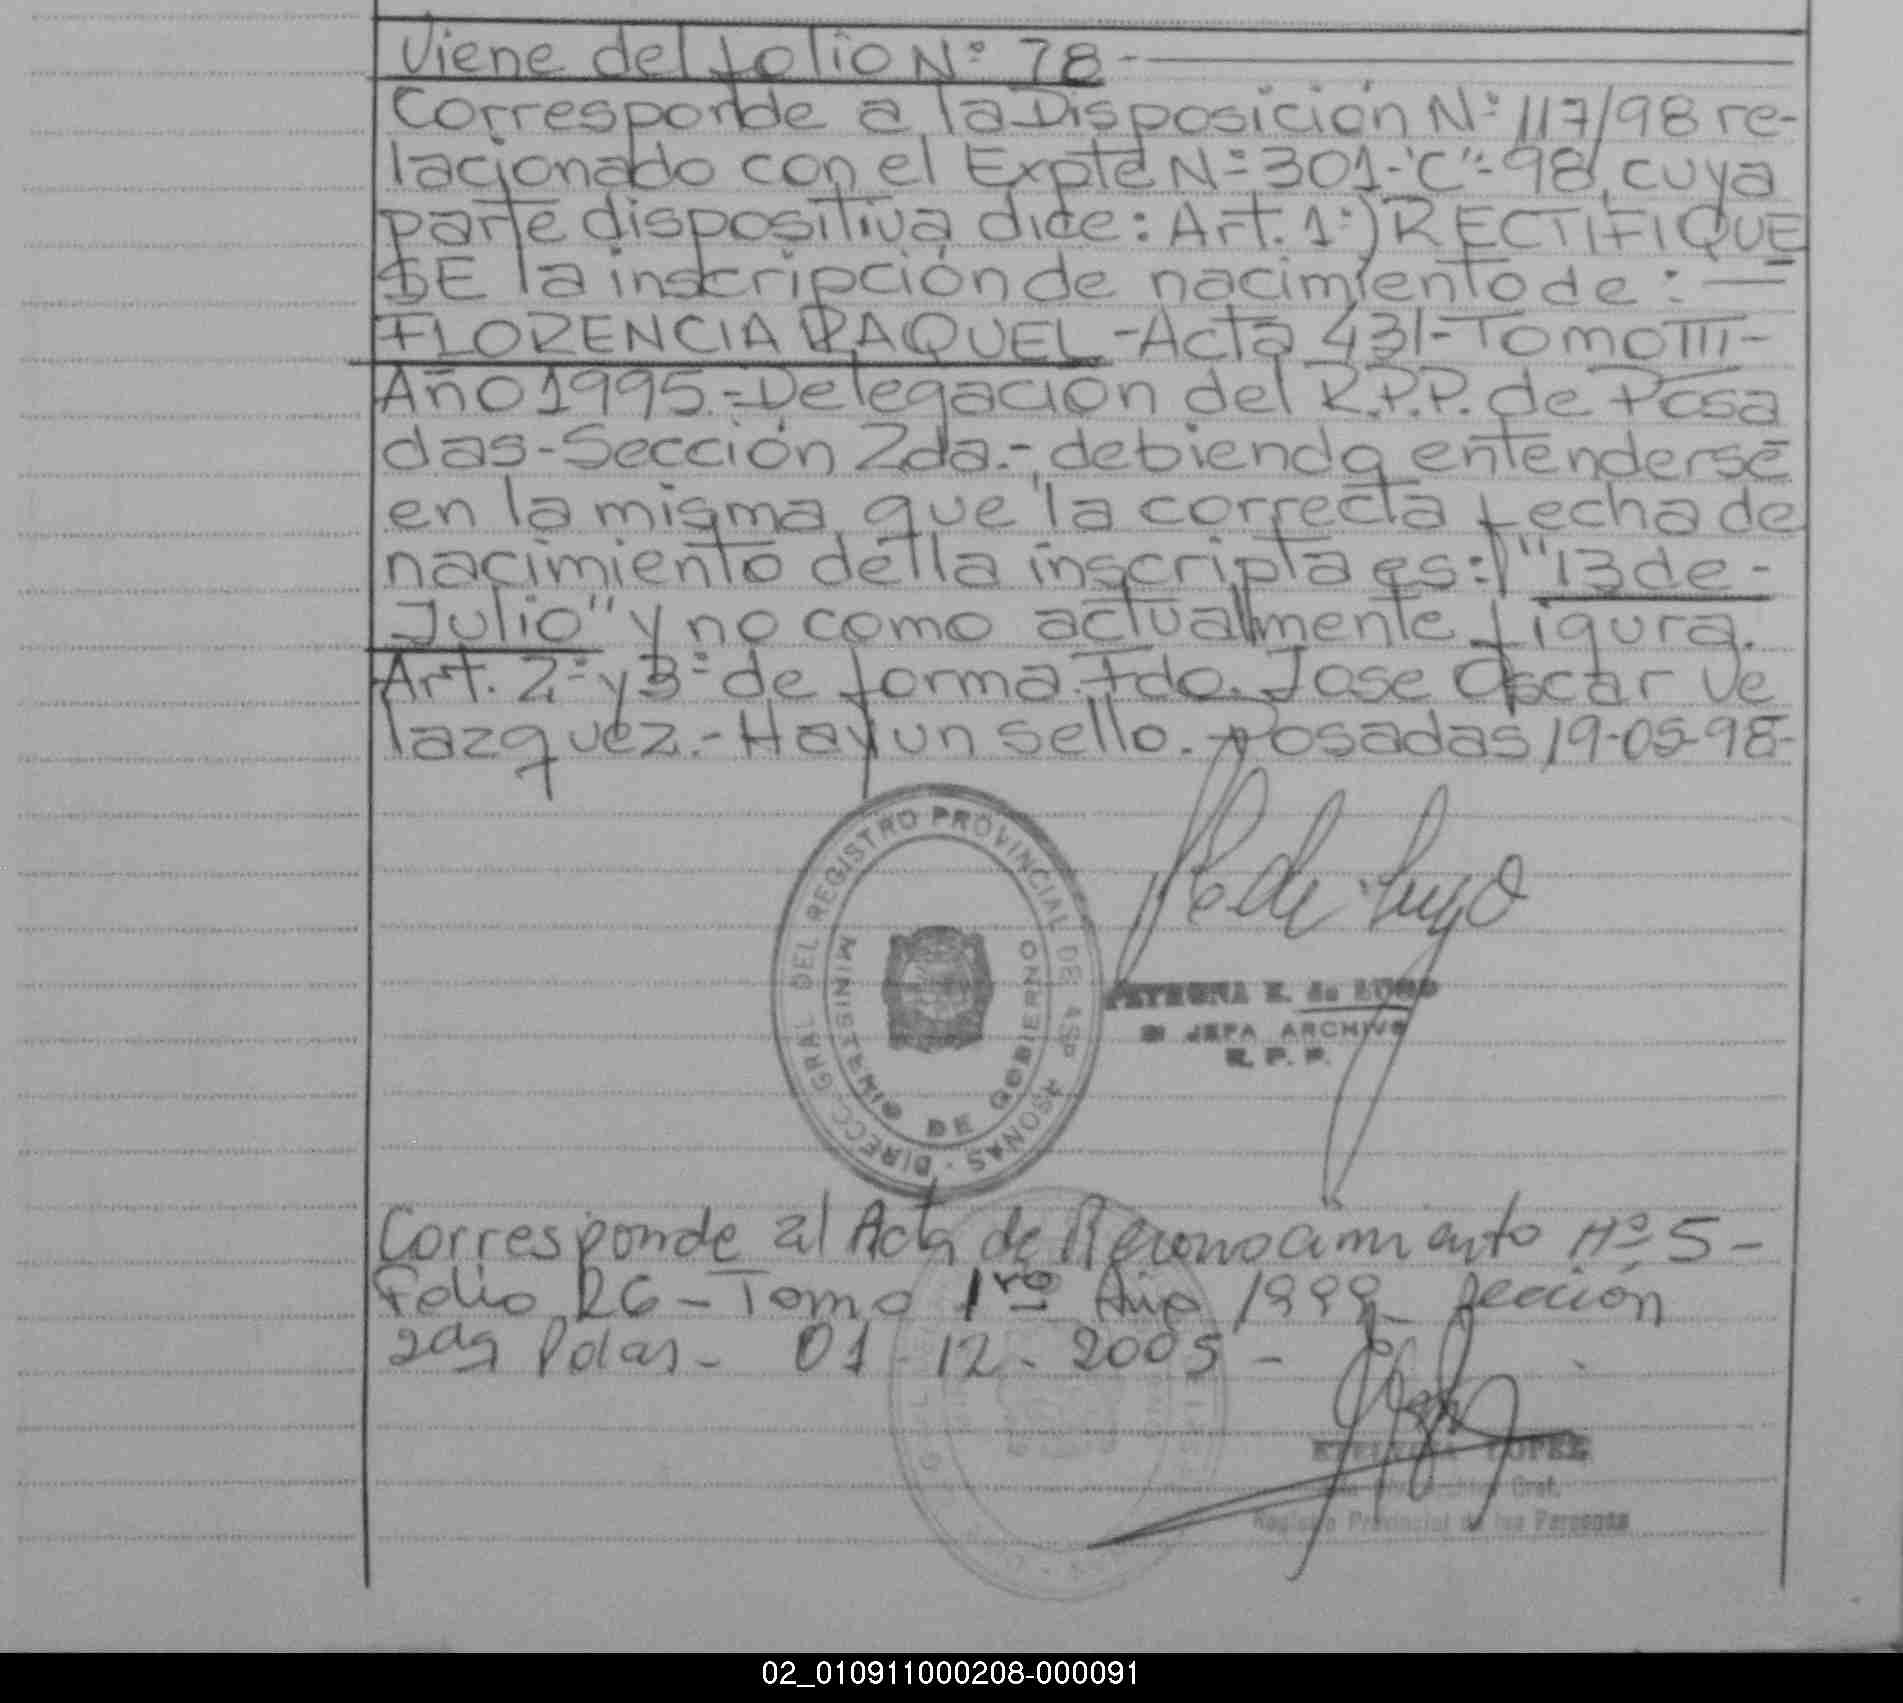 Viene del folio Nº 78-
Corresponde a la Disposición Nº 117/98 re-
lacionado con el Expte Nº 301-"C"-98, cuya
parte dispositiva dice: Art. 1º) RECTIFIQUE
SE la inscripción de nacimiento de: —
FLORENCIA RAQUEL -Acta 431- Tomo III-
Año 1995.- Delegación del R.P.P. de Posa
das-Sección 2da.-, debiendo entenderse
en la misma que la correcta fecha de
nacimiento de la inscripta es: "13 de-
Julio" y no como actualmente figura.
Art. 2º y 3º de forma. Fdo. Jose Oscar Ve
lazquez.- Hay un sello. Posadas, 19-05-98-
DIRECC. GRAL DEL REGISTRO PROVINCIAL DE LAS PERSONAS
MINISTERIO DE GOBIERNO
de Lugo
PETRONA E. de LUGO
JEFA ARCHIVO
R. P. P.
Corresponde al Acta de Reconocimiento Nº 5-
Folio 26 - Tomo 1ro Año 1999 - Sección
2da Pdas - 01 - 12 - 2005 -
LOPEZ
Archivo Gral.
Registro Provincial de las Personas
02_010911000208-000091